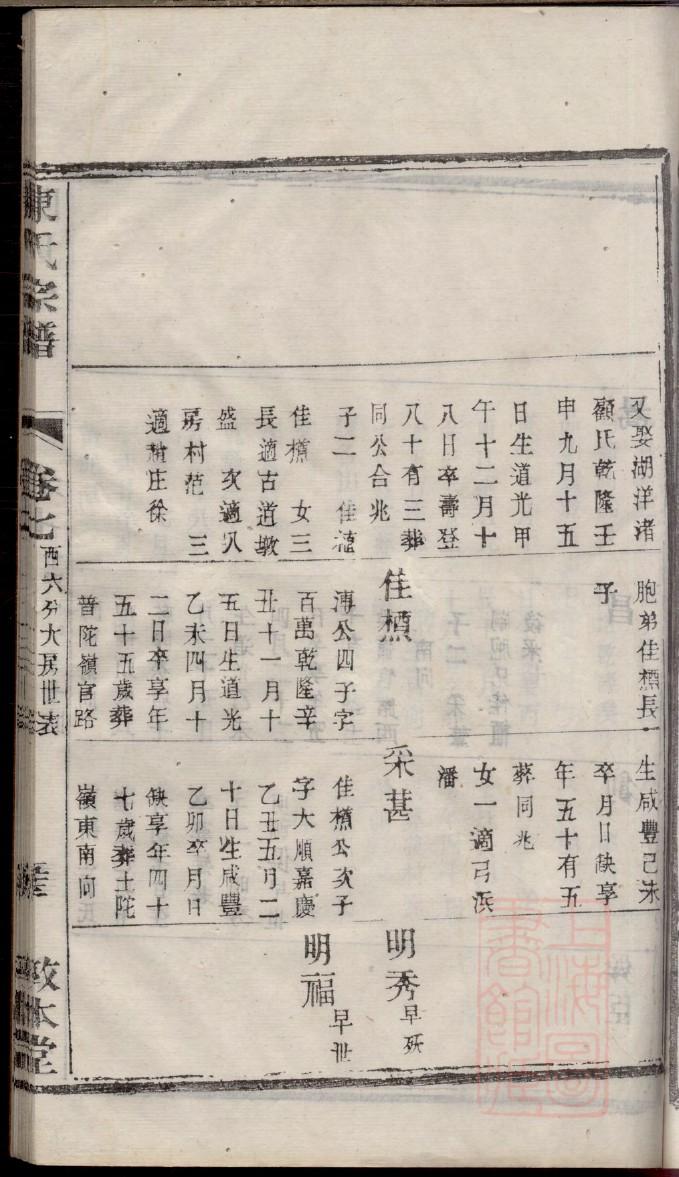 陳氏宗譜
卷七
西六分大房世表
敦本堂
又娶湖洋渚
顧氏乾隆壬
申九月十五
日生道光甲
午十二月十
八日卒壽登
八十有三葬
同公合兆
子二 佳
佳櫝 女三
長適古道墩
盛 次適
房村范 三
適莊徐
胞弟佳櫝長
子
佳櫝
溥公四子字
百萬乾隆辛
丑十一月十
五日生道光
乙未四月十
二日卒享年
五十五歲葬
普陀嶺官路
生咸豐己未
卒月日缺享
年五十有五
葬同兆
女一適弓浜
潘
采葚
佳櫝公次子
字大順嘉慶
乙丑五月二
十日生咸豐
乙卯卒月日
缺享年四十
七歲葬土陀
嶺東南向
明秀早殀
明福早世
上海圖書館藏